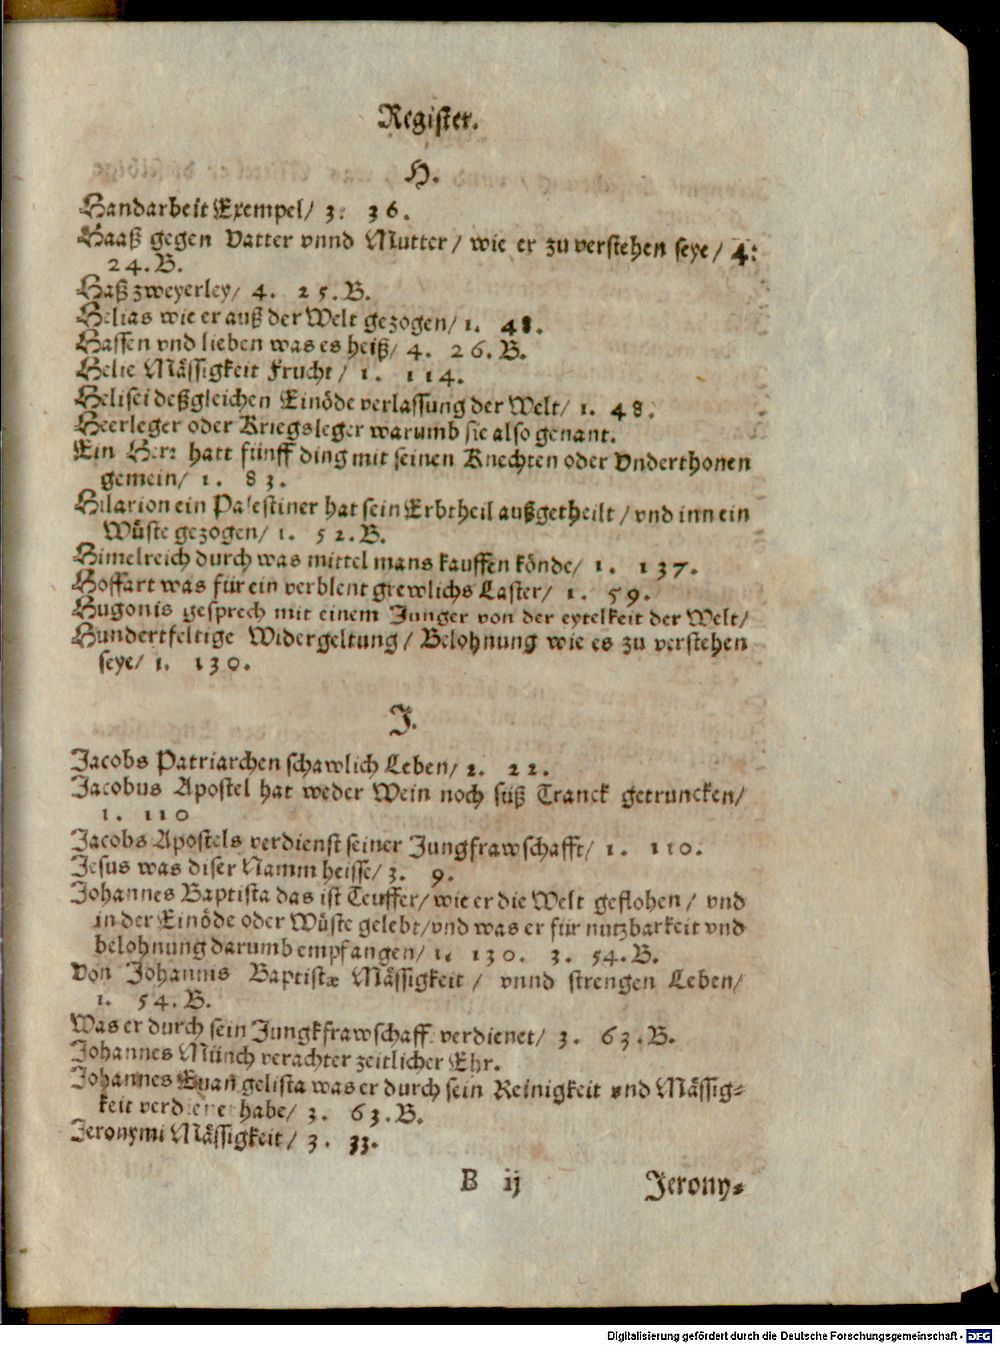 Register.
H.
Handarbeit Exempel/ 3. 36.
Haaß gegen Vatter vnnd Mutter / wie er zu verstehen seye / 4:
24. B.
Haß zweyerley/ 4. 25. B.
Helias wie er auß der Welt gezogen/ 1. 48.
Hassen vnd lieben was es heiß/ 4. 26. B.
Helie Mässigkeit Frucht / 1. 114.
Helisei deßgleichen Einöde verlassung der Welt/ 1. 48.
Heerleger oder Kriegsleger warumb sie also genant.
Ein Herr hatt fünff ding mit seinen Knechten oder Vnderthonen
gemein/ 1. 83.
Hilarion ein Palestiner hat sein Erbtheil außgetheilt / vnd inn ein
Wüste gezogen/ 1. 52. B.
Himelreich durch was mittel mans kauffen könde/ 1. 137.
Hoffart was für ein verblent grewlichs Laster/ 1. 59.
Hugonis gesprech mit einem Junger von der eytelkeit der Welt/
Hundertfeltige Widergeltung / Belohnung wie es zu verstehen
seye/ 1. 130.
J.
Jacobs Patriarchen schawlich Leben/ 1. 22.
Jacobus Apostel hat weder Wein noch süß Tranck getruncken/
1. 110
Jacobs Apostels verdienst seiner Jungfrawschafft/ 1. 110.
Jesus was diser Namm heisse/ 3. 9.
Johannes Baptista das ist Teuffer/ wie er die Welt geflohen / vnd
in der Einöde oder Wüste gelebt/ vnd was er für nutzbarkeit vnd
belohnung darumb empfangen/ 1. 130. 3. 54. B.
Von Johannis Baptistæ Mässigkeit / vnnd strengen Leben/
1. 54. B.
Was er durch sein Jungkfrawschaff verdienet/ 3. 63. B.
Johannes Münch verachter zeitlicher Ehr.
Johannes Euangelista was er durch sein Reinigkeit vnd Mässig⸗
keit verdienet habe/ 3. 63. B.
Jeronymi Mässigkeit / 3. 33.
B ij Jerony⸗
Digitalisierung gefördert durch die Deutsche Forschungsgemeinschaft - DFG